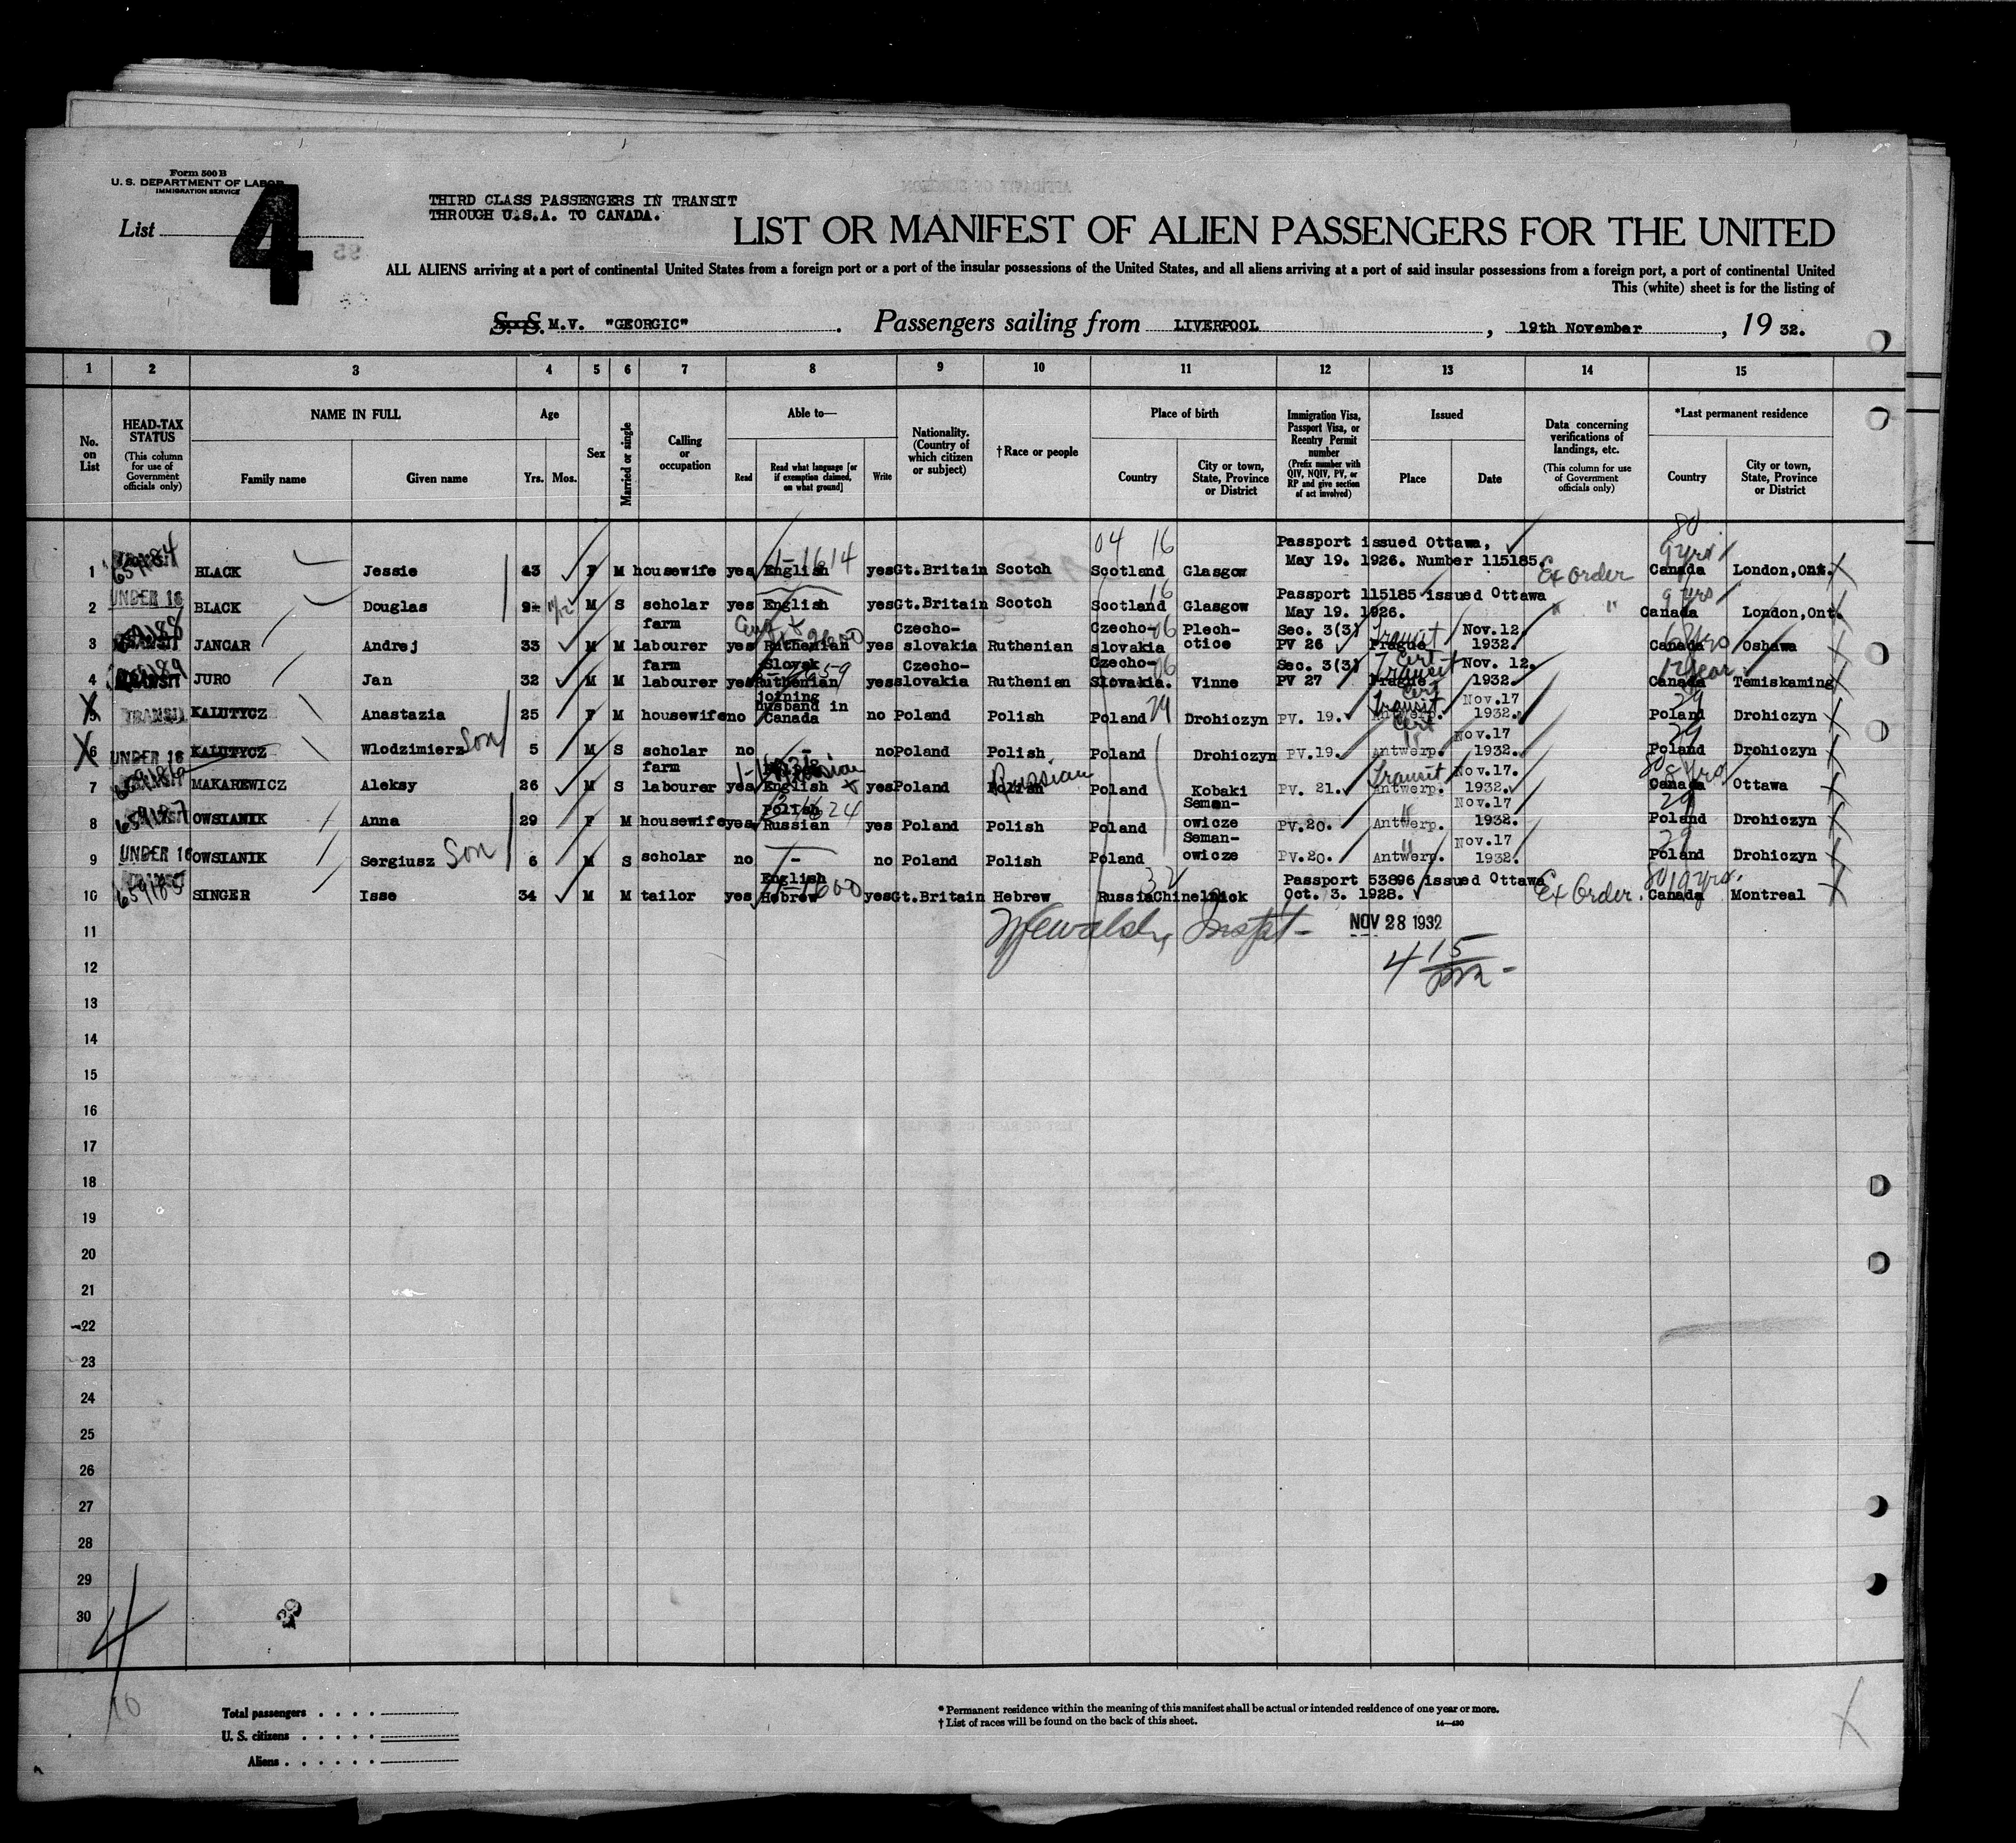 Form 500 B
U. S. DEPARTMENT OF LABOR
IMMIGRATION SERVICE
List 4
THIRD CLASS PASSENGERS IN TRANSIT
THROUGH U.S.A. TO CANADA.
LIST OR MANIFEST OF ALIEN PASSENGERS FOR THE UNITED
ALL ALIENS arriving at a port of continental United States from a foreign port or a port of the insular possessions of the United States, and all aliens arriving at a port of said insular possessions from a foreign port, a port of continental United
This (white) sheet is for the listing of
S. S. M.V. "GEORGIC". Passengers sailing from LIVERPOOL, 19th November, 19 32.
1 2 3 4 5 6 7 8 9 10 11 12 13 14 15
No. on List
HEAD-TAX STATUS (This column for use of Government officials only)
NAME IN FULL
Family name Given name
Age
Yrs. Mos.
Sex
Married or single
Calling or occupation
Able to—
Read
Read what language [or if exemption claimed, on what ground]
Write
Nationality. (Country of which citizen or subject)
†Race or people
Place of birth
Country
City or town, State, Province or District
Immigration Visa, Passport Visa, or Reentry Permit number (Prefix number with QIV, NQIV, PV, or RP and give section of act involved)
Issued
Place Date
Data concerning verifications of landings, etc. (This column for use of Government officials only)
*Last permanent residence
Country
City or town, State, Province or District
1 659184 BLACK Jessie 43 F M housewife yes English 1-1614 yes Gt.Britain Scotch Scotland 04 16 Glasgow Passport issued Ottawa, May 19. 1926. Number 115185. Ex Order 80 9 yrs Canada London,Ont.
2 UNDER 16 BLACK Douglas 9 11/12 M S scholar yes English yes Gt.Britain Scotch Scotland 16 Glasgow Passport 115185 issued Ottawa May 19. 1926. " " 9 yrs Canada London,Ont.
3 JANCAR Andrej 33 M M farm labourer yes Ruthenian yes Czecho-slovakia Ruthenian Czecho-slovakia 06 Plech-otice Sec. 3(3) PV 26 Transit Cert Prague Nov.12. 1932. Canada Oshawa
4 TRANSIT JURO Jan 32 M M farm labourer yes Slovak Ruthenian yes Czecho-slovakia Ruthenian Czecho-Slovakia. 06 Vinne Sec. 3(3) PV 27 Transit Cert Prague Nov. 12. 1932. Canada Temiskaming
X 5 TRANSIT KALUTYCZ Anastazia 25 F M housewife no joining husband in Canada no Poland Polish Poland 29 Drohiczyn PV. 19. Transit Cert Antwerp. Nov.17 1932. 29 Poland Drohiczyn
X 6 UNDER 16 KALUTYCZ Wlodzimierz Son 5 M S scholar no - no Poland Polish Poland Drohiczyn PV.19. " Antwerp. Nov.17 1932. 29 Poland Drohiczyn
7 659186 MAKAREWICZ Aleksy 26 M S farm labourer yes Russian English yes Poland Polish Russian Poland Kobaki PV. 21. Transit Antwerp. Nov.17. 1932. 80 8 yrs Canada Ottawa
8 659187 OWSIANIK Anna 29 F M housewife yes Polish Russian yes Poland Polish Poland Seman-owicze PV.20. " Antwerp. Nov.17 1932. 29 Poland Drohiczyn
9 UNDER 16 OWSIANIK Sergiusz Son 6 M S scholar no - no Poland Polish Poland Seman-owicze PV.20. " Antwerp. Nov.17 1932. 29 Poland Drohiczyn
10 659185 SINGER Isse 34 M M tailor yes English Hebrew yes Gt.Britain Hebrew Russia 32 Passport 53896 issued Ottawa Oct. 3. 1928. Ex Order. 80 19 yrs. Canada Montreal
11 NOV 28 1932
12 4 15
13
14
15
16
17
18
19
20
21
22
23
24
25
26
27
28
29
30
4
10
Total passengers
U. S. citizens
Aliens
* Permanent residence within the meaning of this manifest shall be actual or intended residence of one year or more.
† List of races will be found on the back of this sheet.
14—430